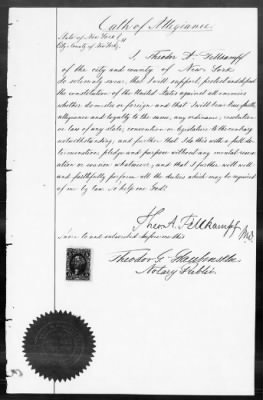 Oath of Allegiance
State of New York
City & County of New York
I, Theodor A. Tellkampf
of the city and county of New York
do solemnly swear, that I will support, protect and defend
the constitution of the United States against all enemies
whether domestic or foreign and that I will bear true faith,
allegiance and loyalty to the same, any ordinance, resolution
or law of any state, convention or legislature to the contrary
notwithstanding, and further that I do this with a full de-
termination, pledge and purpose without any mental reser-
vation or evasion whatsoever, and that I further will well
and faithfully perform all the duties which may be required
of me by law. So help me God!
Theo. A. Tellkampf M.D.
Sworn to and subscribed before me this
Theodor
Notary Public